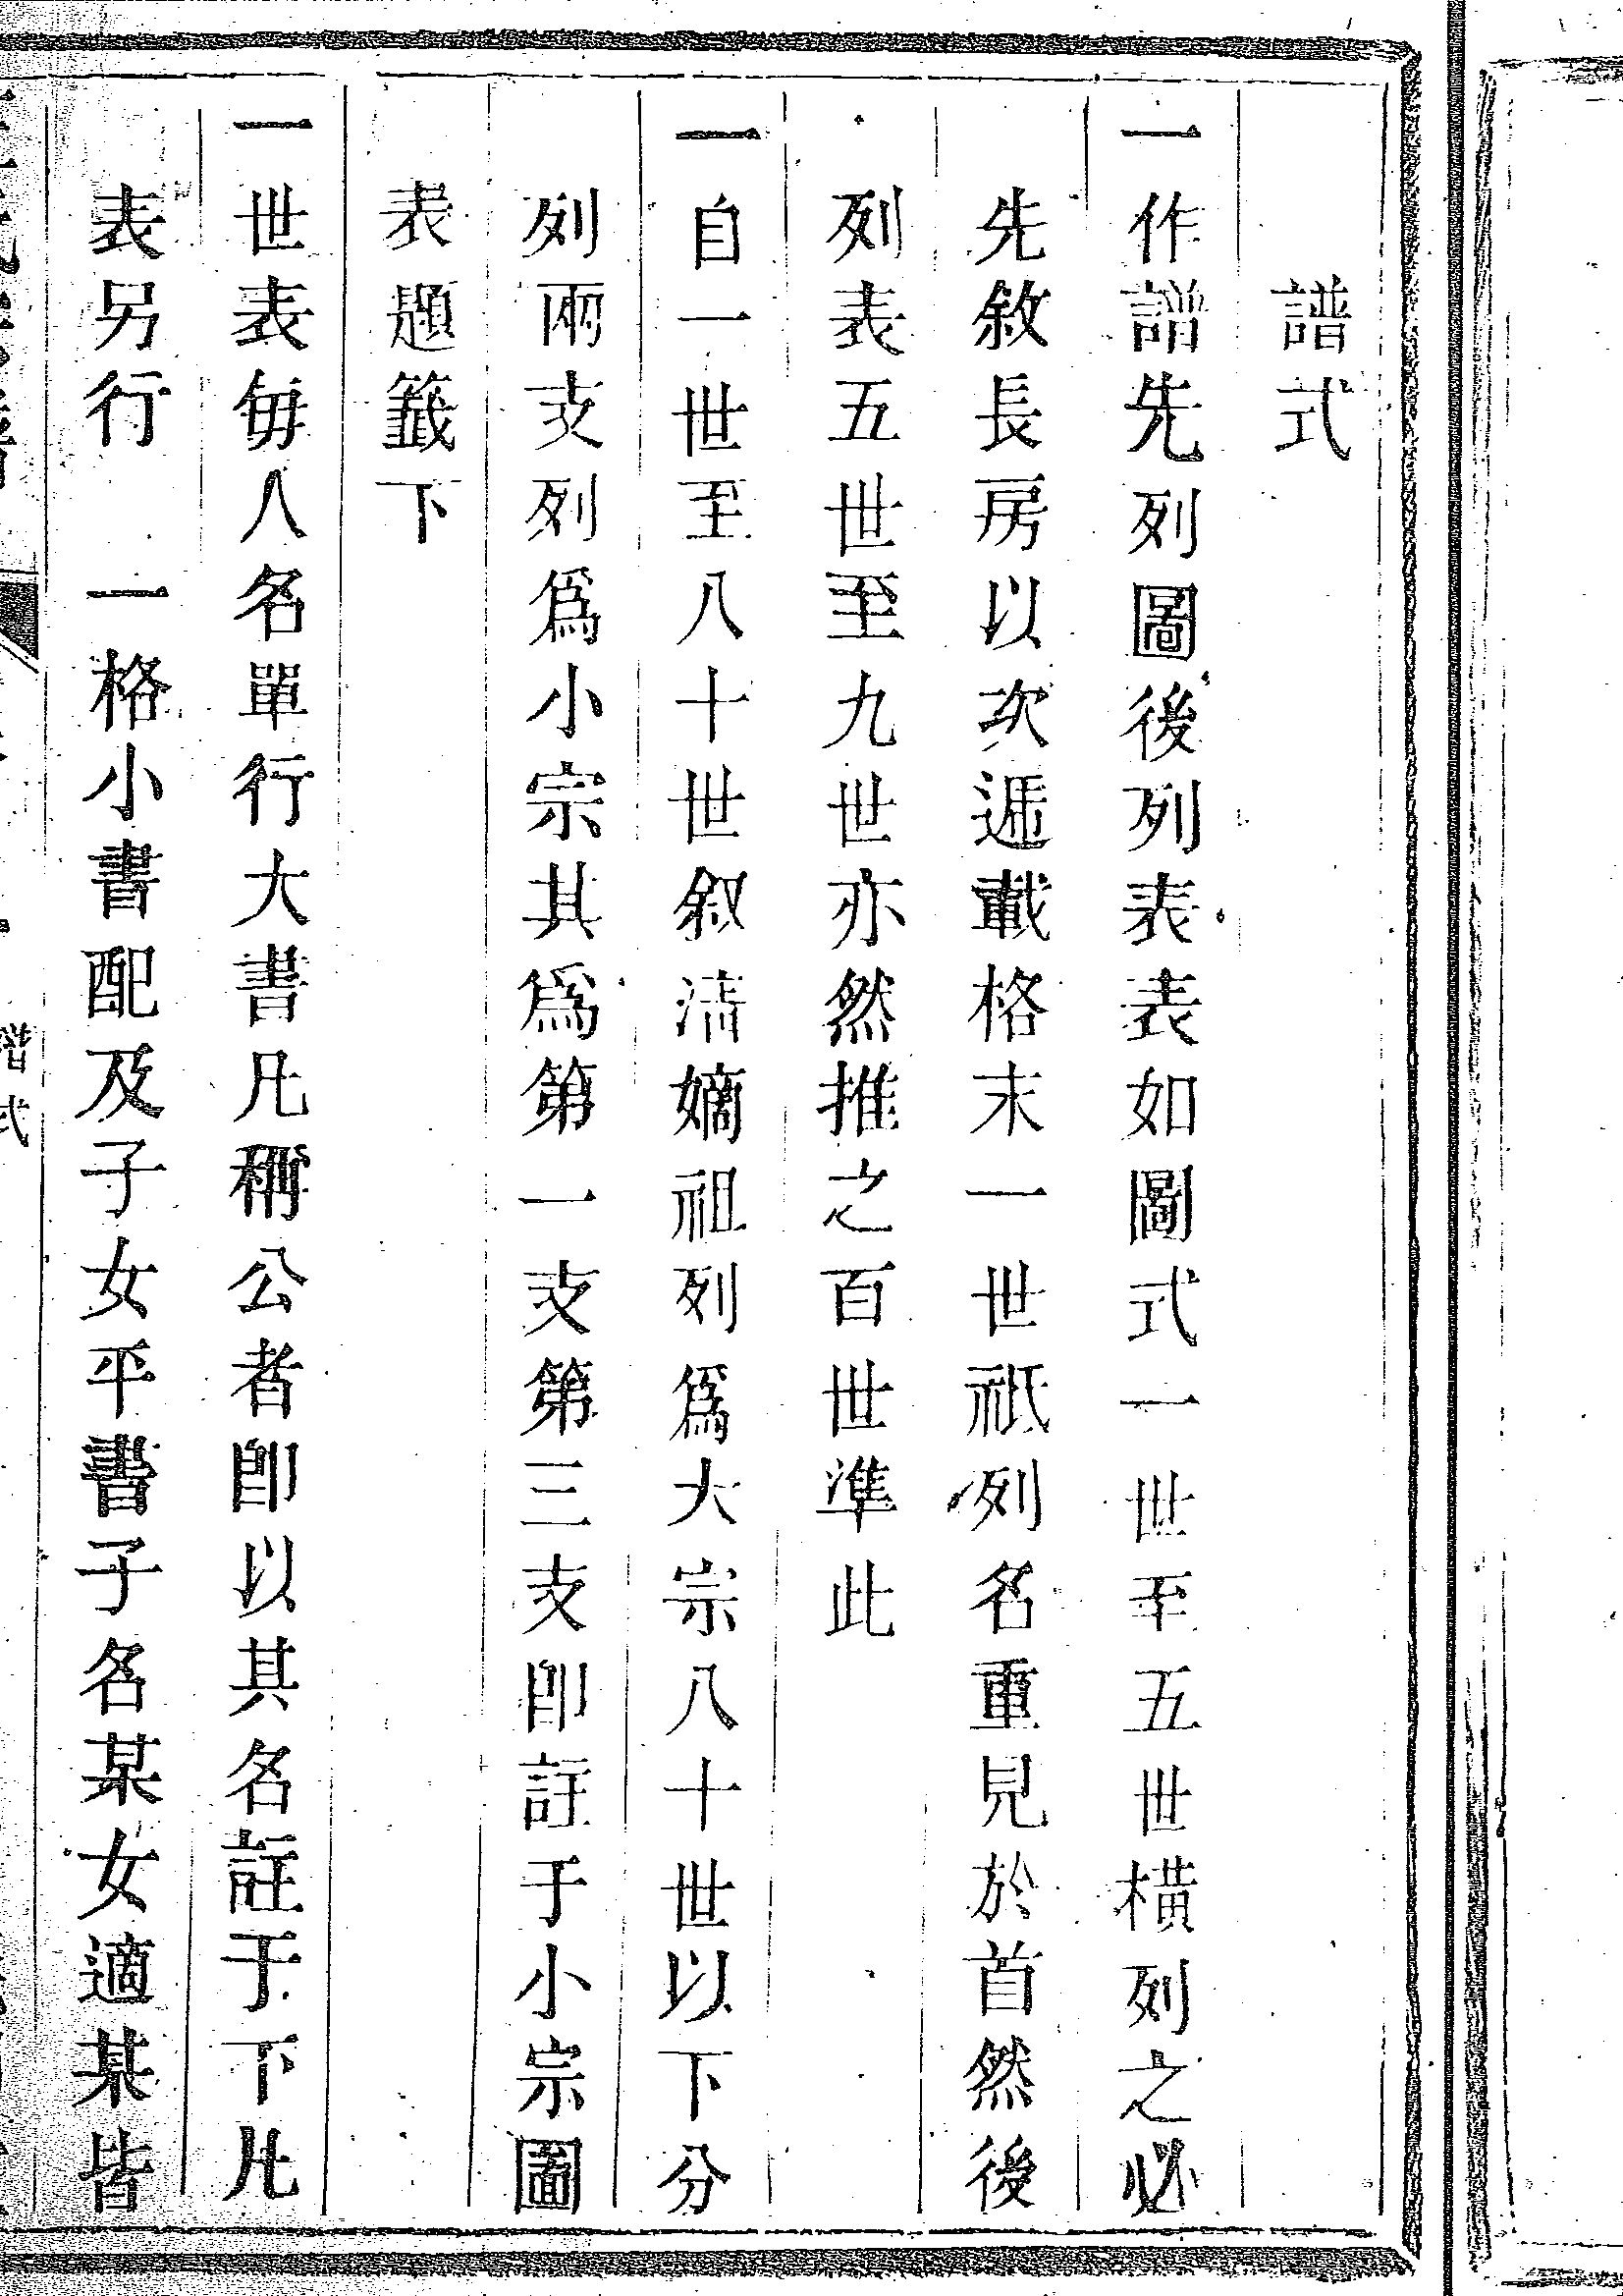 譜式
一作譜先列圖後列表表如圖式一世至五世橫列之必
先敘長房以次遞載格末一世祇列名重見於首然後
列表五世至九世亦然推之百世準此
一自一世至八十世敘清嫡祖列爲大宗八十世以下分
列兩支列爲小宗其爲第一支第三支卽註于小宗圖
表題籤下
一世表每人名單行大書凡稱公者卽以其名註于下凡
表另行 一格小書配及子女平書子名某女適某皆
譜式